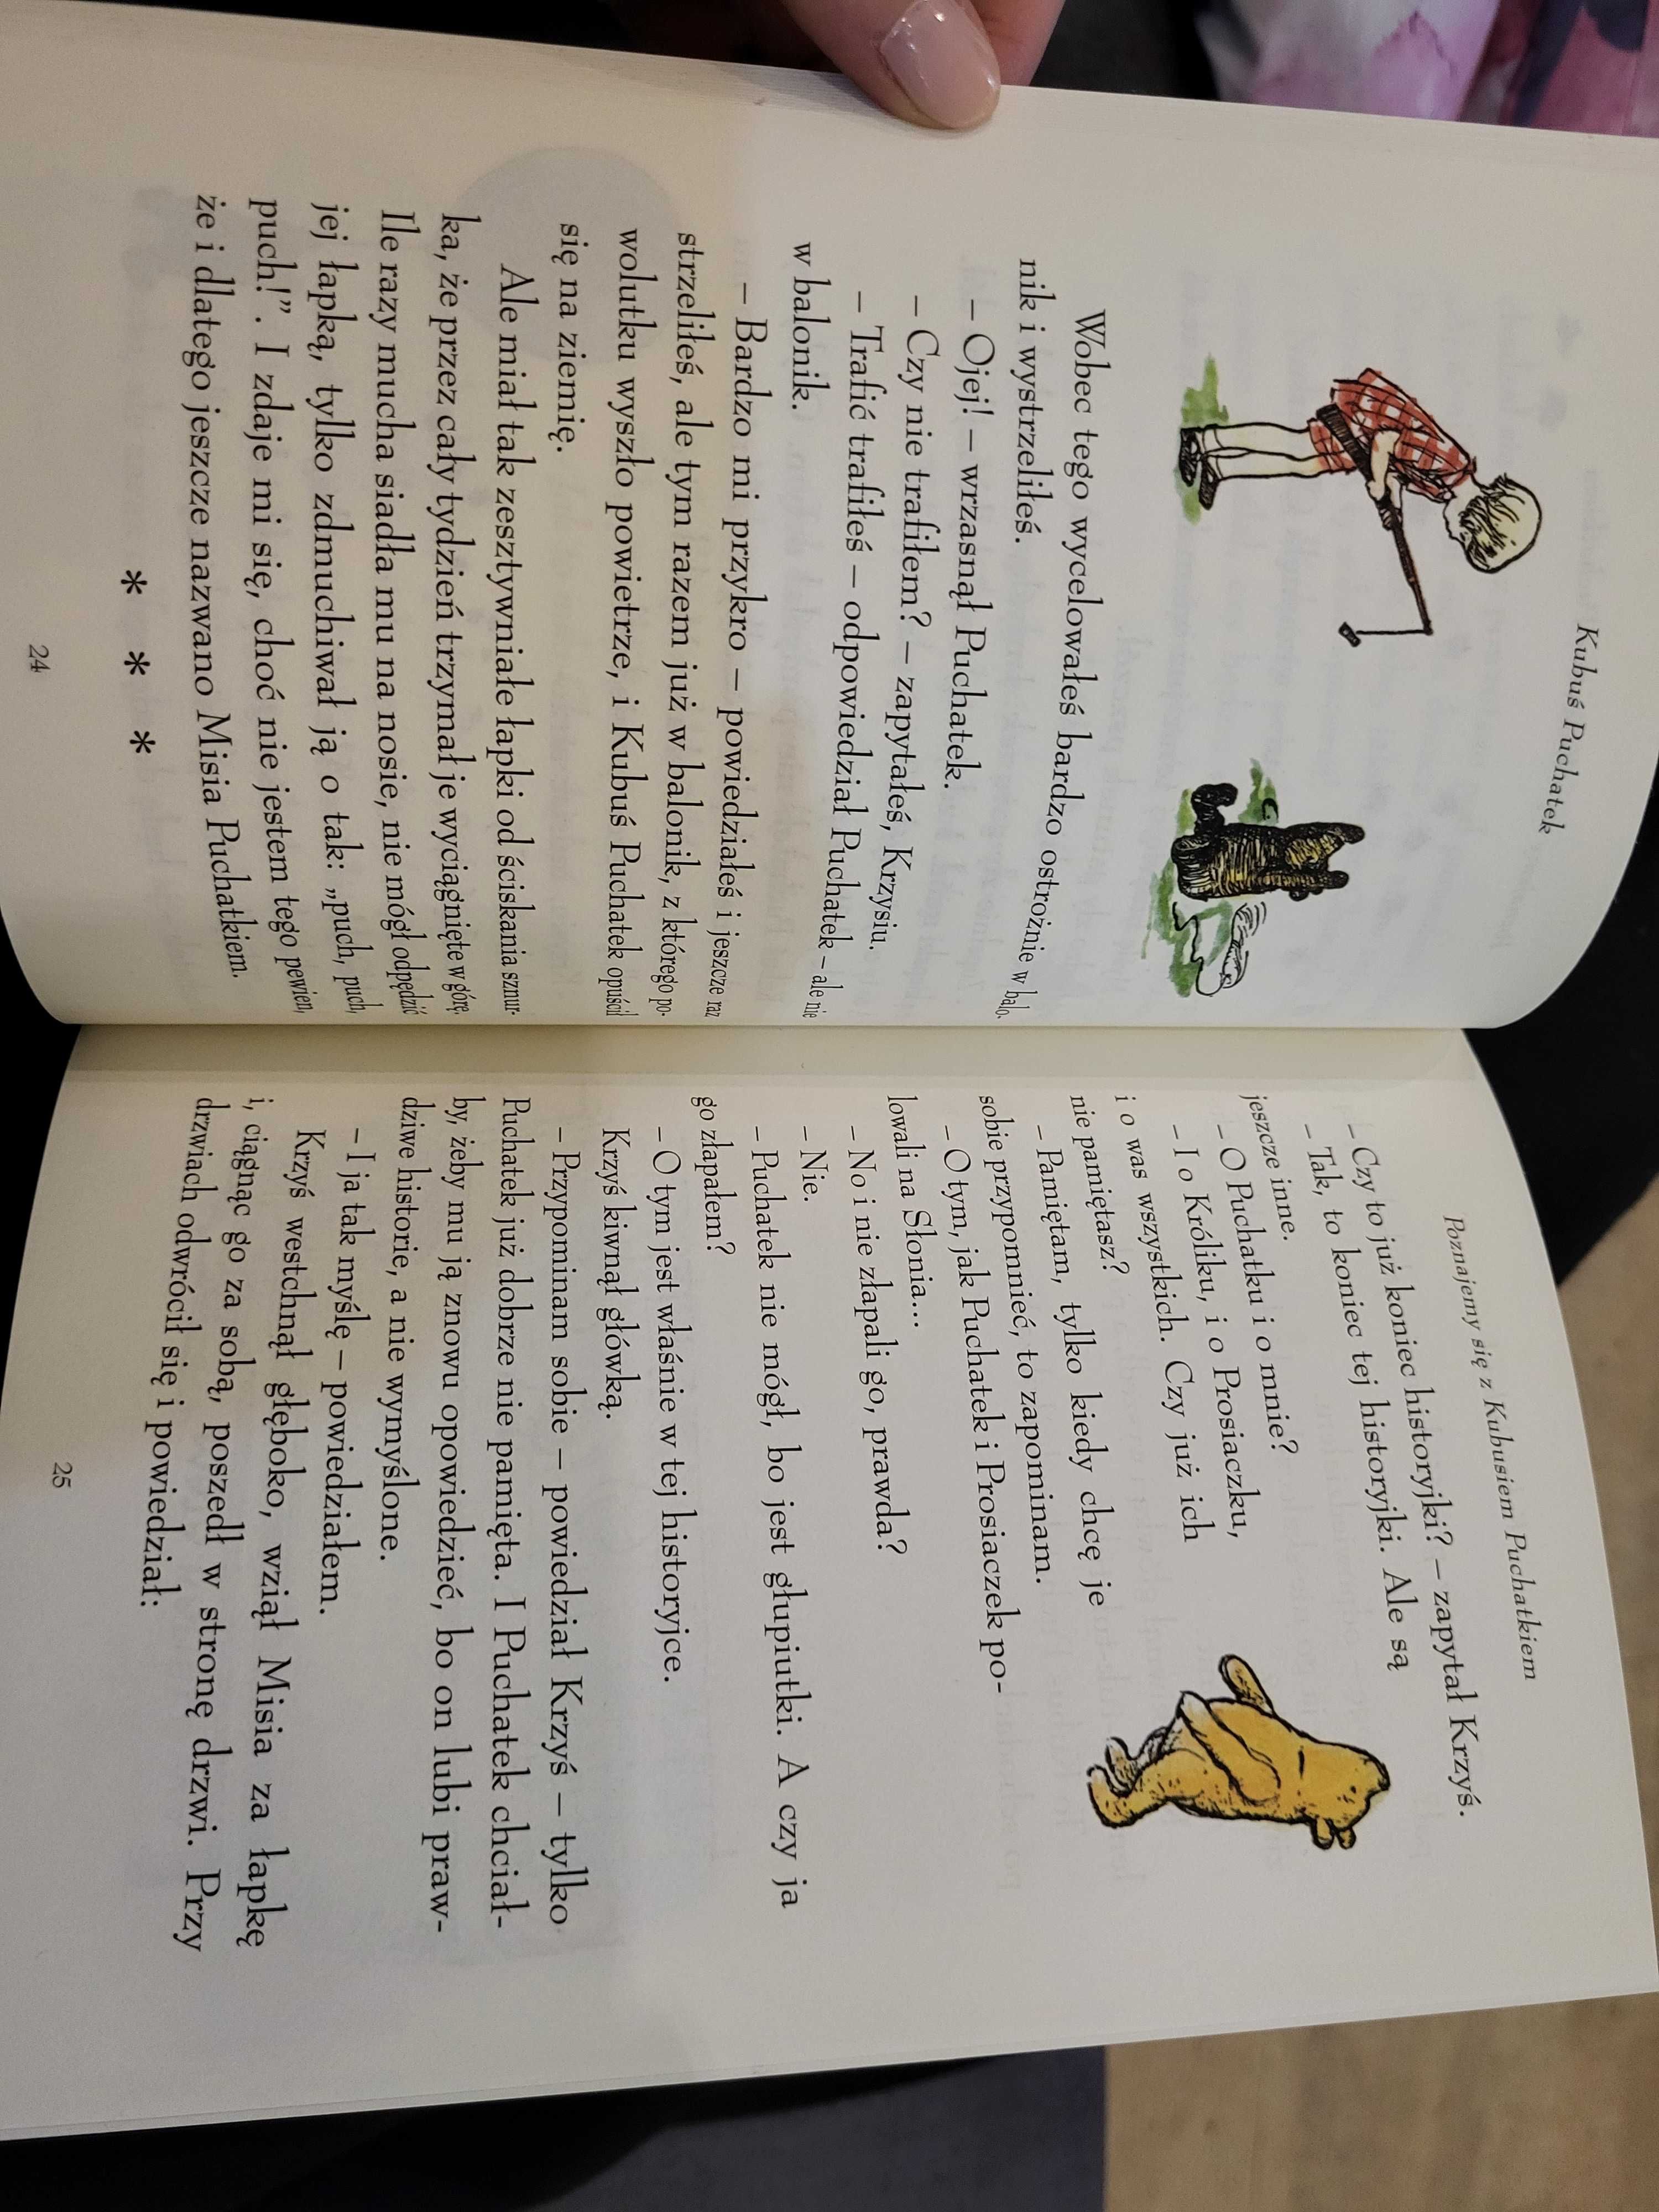 Kubuś Puchatek
Wobec tego wycelowałeś bardzo ostrożnie w balo-
nik i wystrzeliłeś.
– Ojej! – wrzasnął Puchatek.
– Czy nie trafiłem? – zapytałeś, Krzysiu.
– Trafić trafiłeś – odpowiedział Puchatek – ale nie
w balonik.
– Bardzo mi przykro – powiedziałeś i jeszcze raz
strzeliłeś, ale tym razem już w balonik, z którego po-
wolutku wyszło powietrze, i Kubuś Puchatek opuścił
się na ziemię.
Ale miał tak zesztywniałe łapki od ściskania sznur-
ka, że przez cały tydzień trzymał je wyciągnięte w górę.
Ile razy mucha siadła mu na nosie, nie mógł odpędzić
jej łapką, tylko zdmuchiwał ją o tak: „puch, puch,
puch!”. I zdaje mi się, choć nie jestem tego pewien,
że i dlatego jeszcze nazwano Misia Puchatkiem.
* * *
24
Poznajemy się z Kubusiem Puchatkiem
– Czy to już koniec historyjki? – zapytał Krzyś.
– Tak, to koniec tej historyjki. Ale są
jeszcze inne.
– O Puchatku i o mnie?
– I o Króliku, i o Prosiaczku,
i o was wszystkich. Czy już ich
nie pamiętasz?
– Pamiętam, tylko kiedy chcę je
sobie przypomnieć, to zapominam.
– O tym, jak Puchatek i Prosiaczek po-
lowali na Słonia...
– No i nie złapali go, prawda?
– Nie.
– Puchatek nie mógł, bo jest głupiutki. A czy ja
go złapałem?
– O tym jest właśnie w tej historyjce.
Krzyś kiwnął główką.
– Przypominam sobie – powiedział Krzyś – tylko
Puchatek już dobrze nie pamięta. I Puchatek chciał-
by, żeby mu ją znowu opowiedzieć, bo on lubi praw-
dziwe historie, a nie wymyślone.
– I ja tak myślę – powiedziałem.
Krzyś westchnął głęboko, wziął Misia za łapkę
i, ciągnąc go za sobą, poszedł w stronę drzwi. Przy
drzwiach odwrócił się i powiedział:
25